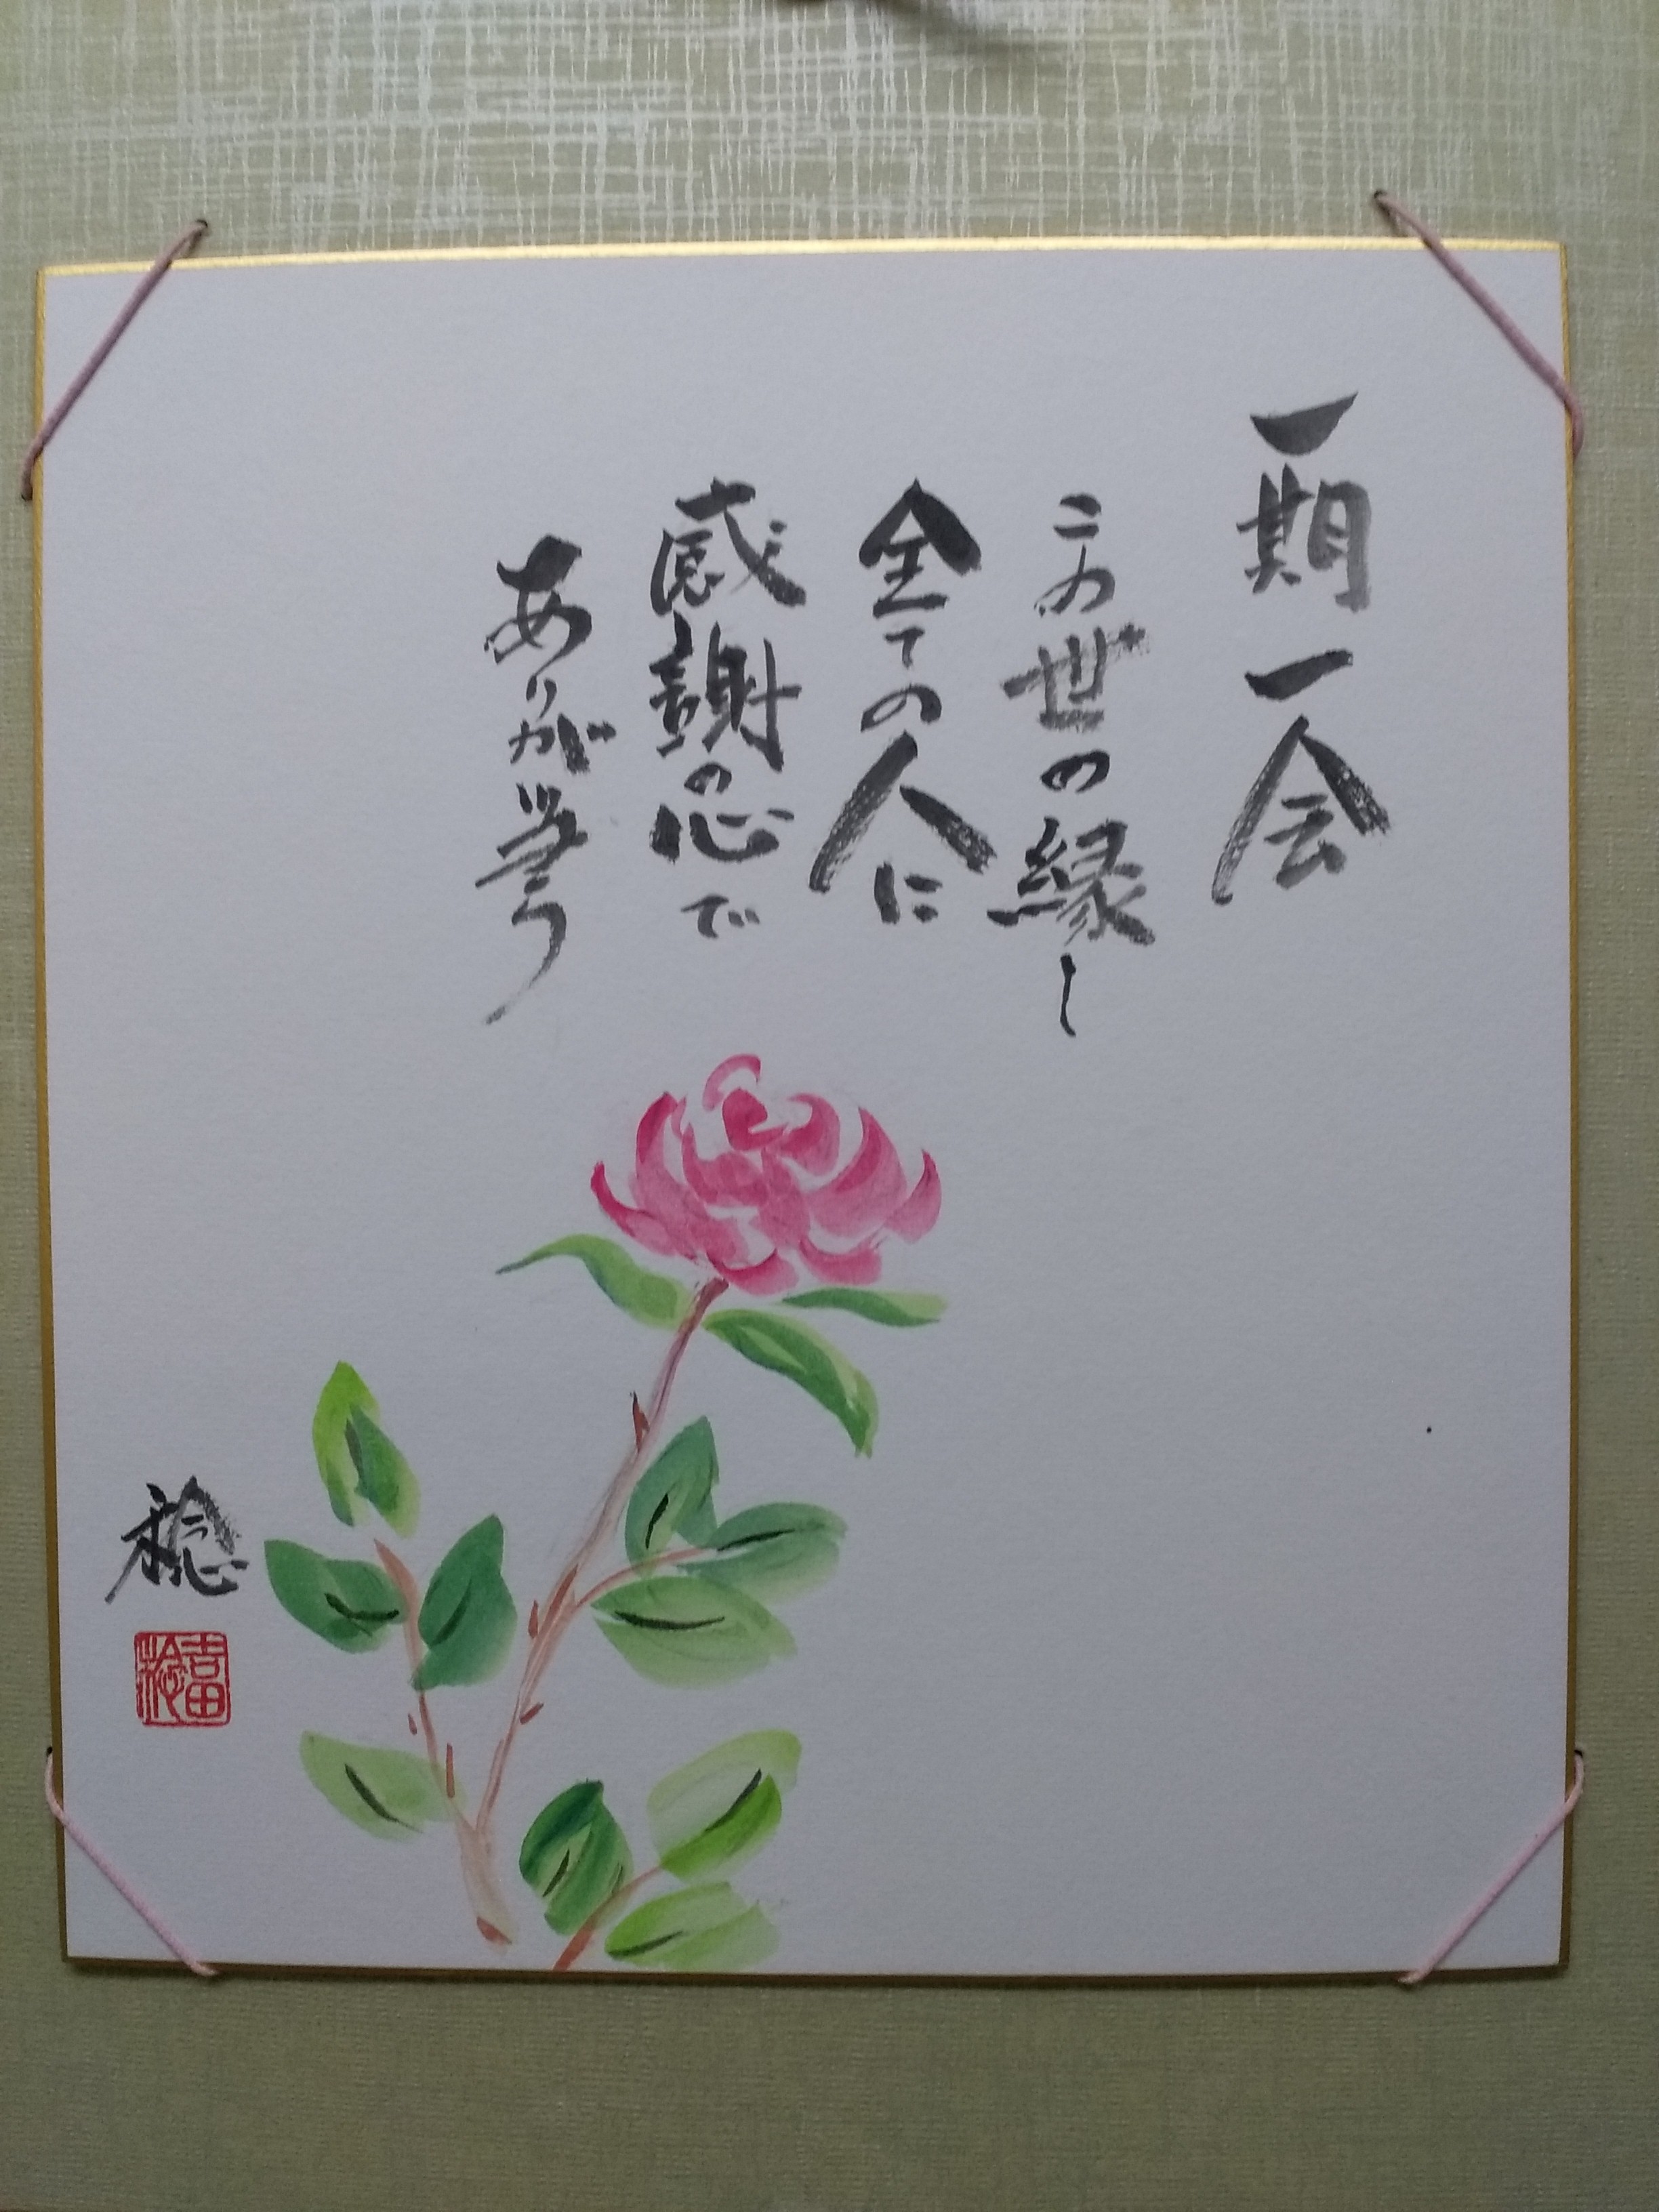 一期一会
この世の縁し
全ての人に
感謝の心で
ありが当う
稔
吉田
稔